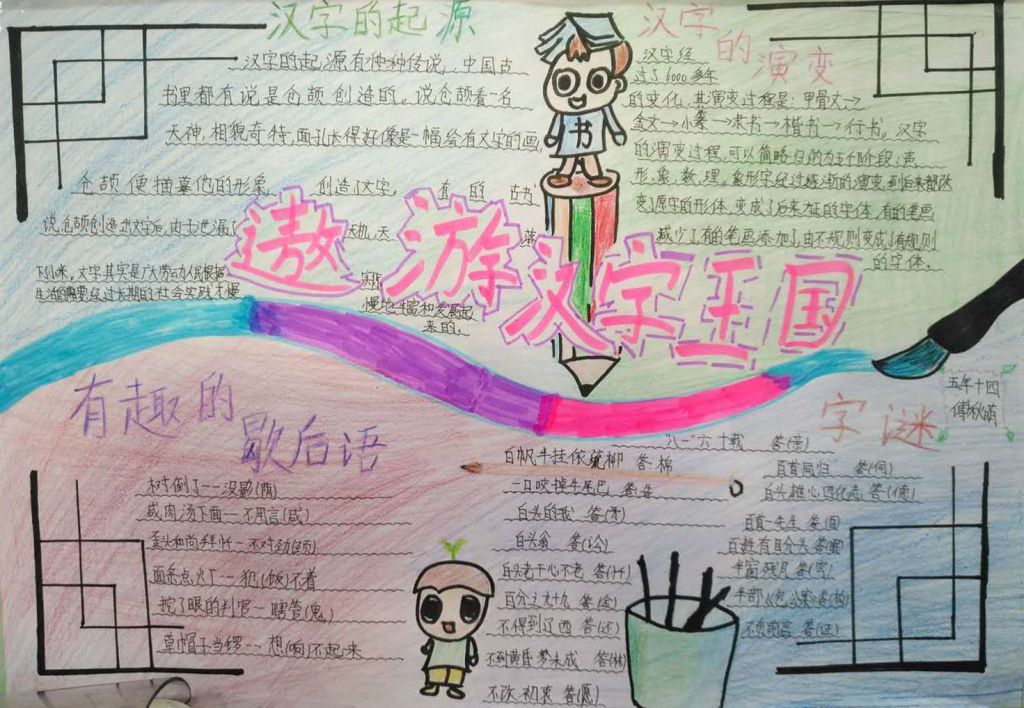 汉字的起源
汉字的起源有种种传说，中国古
书里都有说是仓颉创造的。说仓颉看一名
天神，相貌奇特，面孔长得好像是一幅绘有文字的画，
仓颉便描摹他的形象 创造了文字。 有的 古书
说仓颉创造出文字后，由于泄漏了 天机，天 落
下小米，文字其实是广大劳动人民根据
生活的需要经过长期的社会实践才慢
慢地丰富和发展起
来的。
汉字的演变
汉字经
过了6000多年
的变化，其演变过程是：甲骨文→
金文→小篆→隶书→楷书→行书。汉字
的演变过程，可以简略归纳为五个阶段：声
形、象、数、理。象形字经过逐渐的演变，到后来都改
变了原字的形体，变成了后来在的字体，有的笔画
减少了有的笔画添加了，由不规则变成了有规则
的字体。
书
遨游汉字王国
五年十四
傅秋萌
有趣的
歇后语
树倒了——没影(荫)
咸肉汤下面——不用言(咸)
歪头和尚拜忏——不对劲(颈)
面条点火了——犯(饭)不着
挖了眼的判官——瞎管(鬼)
草帽子当锣——想(响)不起来
字谜
"八一"六十载 答(平)
白帆半挂依疏柳 答 棉
一口咬掉牛尾巴 答 告
白头的我 答(牙)
白头翁 答(公)
白头老干心不老 答(仟)
百分之九十九 答(金)
不得到辽西 答(还)
不到黄昏梦未成 答(林)
不改初衷 答(愿)
百首同归 答(伺)
白头雄心四化志 答(德)
百首一先生 答(面)
半窗残月 答(穷)
不负诺言 答(证)